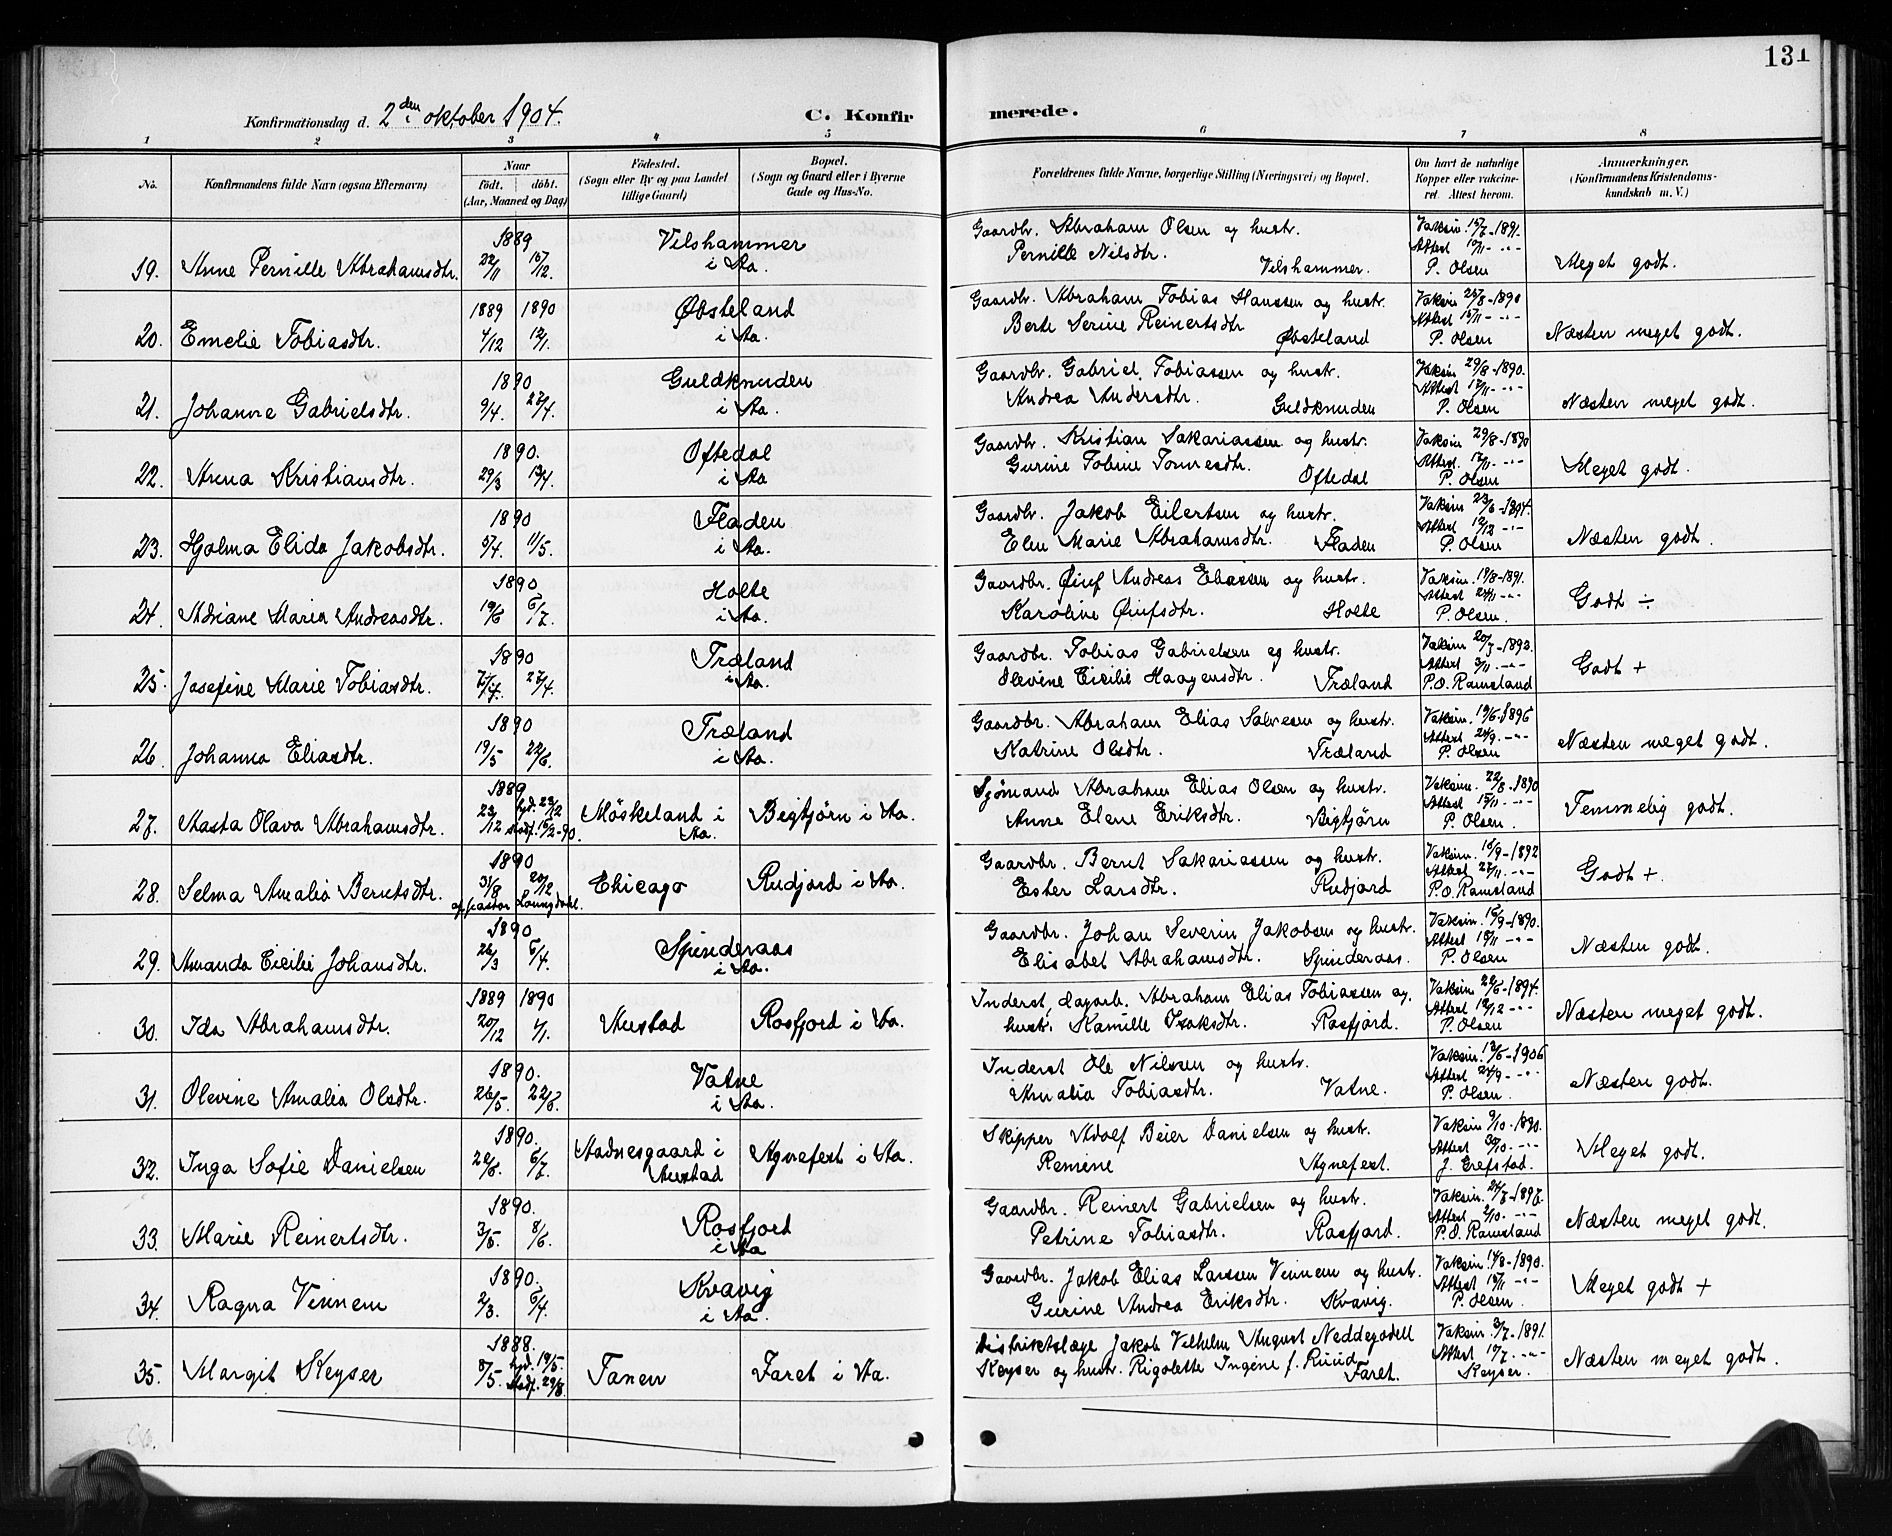 131
Konfirmationsdag d. 2den oktober 1904. C. Konfirmerede.
1 2 3 4 5 6 7 8
No. Konfirmandens fulde Navn (ogsaa Efternavn) Naar født, døbt. (Aar, Maaned og Dag) Fødested. (Sogn eller By og paa Landet tillige Gaard) Bopæl. (Sogn og Gaard eller i Byerne Gade og Hus-No. Forældrenes fulde Navne, borgerlige Stilling (Næringsvei) og Bopæl. Om havt de naturlige Kopper eller vakcineret. Attest herom. Anmærkninger. (Konfirmandens Kristendomskundskab m. V.)
19. Anne Pernille Abrahamsdtr. 1889 22/11 15/12. Vilshammer i Aa. Gaardbr. Abraham Olsen og hustr. Pernille Nilsdtr. Vilshammer. Vaksin 1891. Attest P. Olsen Meget godt.
20. Emelie Tobiasdtr. 1889 1890 4/12 12/1. Øbsteland i Aa. Gaardbr. Abraham Tobias Hanssen og hustr. Berte Serine Reinertsdtr Øbsteland Vaksin 1890 Attest P. Olsen Næsten meget godt.
21. Johanne Gabrielsdtr. 1890 9/4. 27/4. Guldknuden i Aa. Gaardbr. Gabriel Tobiassen og hustr. Andrea Andersdtr. Guldknuden Vaksin 29/8-1890. Attest 17/11 P. Olsen Næsten meget godt.
22. Arena Kristiansdtr. 1890. 29/3 13/4. Oftedal i Aa Gaardbr. Kristian Sakariassen og hustr. Gurine Tobine Tonnesdtr. Oftedal Vaksin 29/8-1890 Attest. 17/11 P. Olsen Meget godt.
23. Hjalma Elida Jakobsdtr. 1890 5/4. 11/5. Fladen i Aa. Gaardbr. Jakob Eilertsen og hustr. Elen Marie Abrahamsdtr. Fladen Vaksin 23/6-1894. Attest 12/12 P. Olsen Næsten godt.
24. Adriane Maria Andreasdtr. 1890 19/6 6/7. Holte i Aa. Gaardbr. Øiuf Andreas Eliassen og hustr. Karoline Øiufsdtr. Holte Vaksin. 1891. Attest P. Olsen. Godt ÷
25. Josefine Marie Tobiasdtr. 1890 7/4. 27/4. Træland i Aa. Gaardbr. Tobias Gabrielsen og hustr. Olevine Cicilie Haagensdtr. Træland Vaksin 20/7-1892. Attest 3/11 P. O. Ramsland Godt +
26. Johanna Eliasdtr. 1890 19/5 22/6. Træland i Aa. Gaardbr. Abraham Elias Salvesen og hustr. Katrine Olsdtr. Træland Vaksin. 19/6-1896 Attest 24/9. P. Olsen Næsten meget godt.
27. Aasta Olava Abrahamsdtr. 1889 23/12 hjd. 29/12 stadf. 16/2-90. Møskeland i Aa. Bigtjørn i Aa. Sjømand Abraham Elias Olsen og hustr. Anne Elene Eriksdtr. Bigtjørn Vaksin. 22/8-1890 Attest 15/11 P. Olsen Temmelig godt.
28. Selma Amalia Berntsdtr. 1890 31/8 20/12 af pastor Chicago Rudjord i Aa. Gaardbr. Bernt Sakariassen og hustr. Ester Larsdtr. Rudjord Vaksin. 1892 Attest 22/11 P. O. Ramsland Godt +.
29. Amanda Cicilie Johansdtr. 1890 26/3 6/4. Spinderaas i Aa. Gaardbr. Johan Severin Jakobsen og hustr. Elisabet Abrahamsdtr. Spinderaas. Vaksin. 1890. Attest P. Olsen Næsten godt.
30. Ida Abrahamsdtr. 1889 1890 20/12 4/1. Austad Rosfjord i Aa. Inderst, dagarb. Abraham Elias Tobiassen og hustr. Kamille Isaksdtr. Rosfjord. Vaksin 22/6-1894. Attest 12/12 P. Olsen Næsten meget godt.
31. Olevine Amalia Olsdtr. 1890. 26/5. 22/6. Vatne i Aa. Inderst Ole Nilsen og hustr. Amalia Tobiasdtr. Vatne. Vaksin. Attest 24/9. P. Olsen Næsten godt.
32. Inga Sofie Danielsen 1890. 6/7. Aadnesgaard i Austad Agnefest i Aa. Skipper Adolf Beier Danielsen og hustr. Remine Agnefest. Vaksin. 9/10-1890. Attest 30/10 J. Grefstad. Meget godt.
33. Marie Reinertsdtr. 1890. 3/5. 8/6. Rosfjord i Aa Gaardbr. Reinert Gabrielsen og hustr. Petrine Tobiasdtr. Rosfjord. Vaksin. 1897. Attest 2/10 P. O. Ramsland Næsten meget godt.
34. Ragna Vennem 1890. 2/3. 6/4. Kvavig i Aa. Gaardbr. Jakob Elias Larssen Vennem og hustr. Gurine Andrea Eriksdtr. Kvavig. Vaksin. 14/8-1890. Attest 15/11 P. Olsen. Meget godt +
35. Margit Keyser 1888. 8/5. hjd. 19/5. stadf. 29/8. Tanen Faret i Aa. Distriktslæge Jakob Vilhelm August Neddegodell Keyser og hustr. Rigolette Ingene f. Ruud Faret. Vaksin. 3/7-1891. Attest 17/7. Keyser. Næsten meget godt.